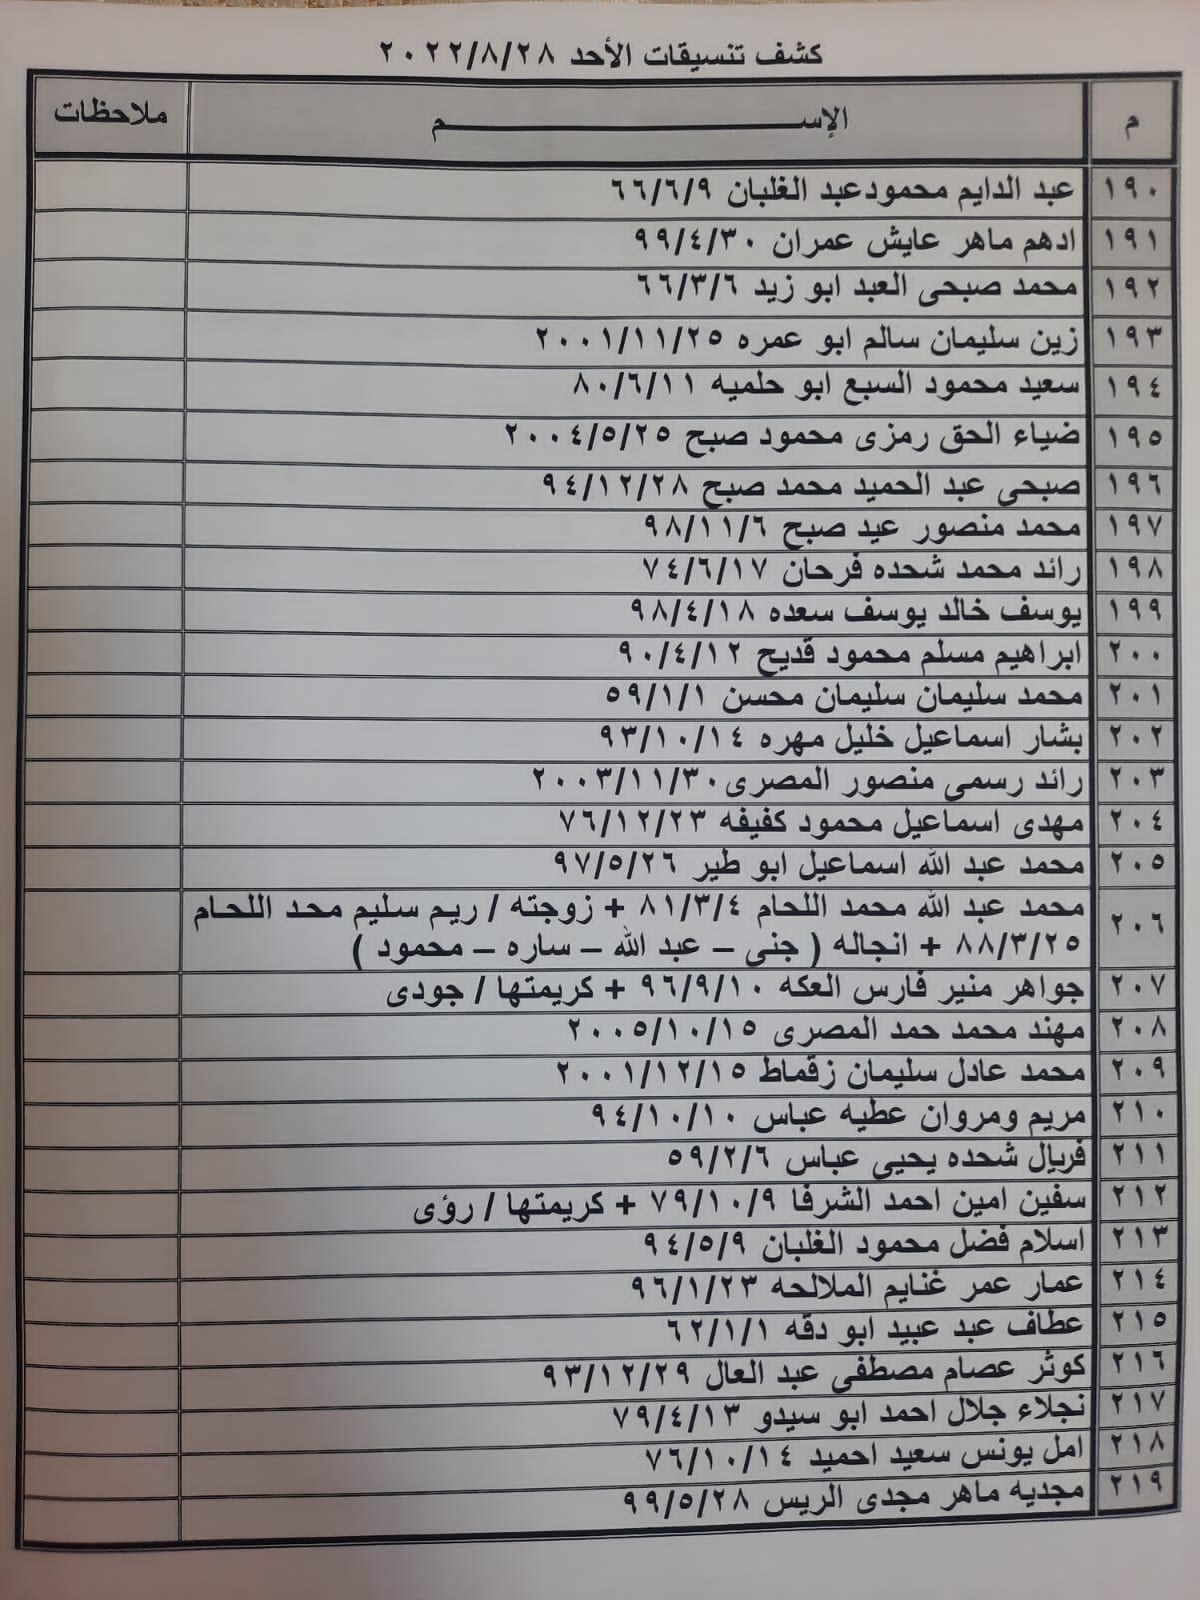 كشف تنسيقات الأحد ٢٠٢٢/٨/٢٨
م الإســــــم ملاحظات
١٩٠ عبد الدايم محمودعبد الغلبان ٦٦/٦/٩
١٩١ ادهم ماهر عايش عمران ٩٩/٤/٣٠
١٩٢ محمد صبحى العبد ابو زيد ٦٦/٣/٦
١٩٣ زين سليمان سالم ابو عمره ٢٠٠١/١١/٢٥
١٩٤ سعيد محمود السبع ابو حلميه ٨٠/٦/١١
١٩٥ ضياء الحق رمزى محمود صبح ٢٠٠٤/٥/٢٥
١٩٦ صبحى عبد الحميد محمد صبح ٩٤/١٢/٢٨
١٩٧ محمد منصور عيد صبح ٩٨/١١/٦
١٩٨ رائد محمد شحده فرحان ٧٤/٦/١٧
١٩٩ يوسف خالد يوسف سعده ٩٨/٤/١٨
٢٠٠ ابراهيم مسلم محمود قديح ٩٠/٤/١٢
٢٠١ محمد سليمان سليمان محسن ٥٩/١/١
٢٠٢ بشار اسماعيل خليل مهره ٩٣/١٠/١٤
٢٠٣ رائد رسمى منصور المصرى٢٠٠٣/١١/٣٠
٢٠٤ مهدى اسماعيل محمود كفيفه ٧٦/١٢/٢٣
٢٠٥ محمد عبد الله اسماعيل ابو طير ٩٧/٥/٢٦
٢٠٦ محمد عبد الله محمد اللحام ٨١/٣/٤ + زوجته / ريم سليم محد اللحام
٨٨/٣/٢٥ + انجاله ( جنى – عبد الله – ساره – محمود )
٢٠٧ جواهر منير فارس العكه ٩٦/٩/١٠ + كريمتها / جودى
٢٠٨ مهند محمد حمد المصرى ٢٠٠٥/١٠/١٥
٢٠٩ محمد عادل سليمان زقماط ٢٠٠١/١٢/١٥
٢١٠ مريم ومروان عطيه عباس ٩٤/١٠/١٠
٢١١ فريال شحده يحيى عباس ٥٩/٢/٦
٢١٢ سفين امين احمد الشرفا ٧٩/١٠/٩ + كريمتها / رؤى
٢١٣ اسلام فضل محمود الغلبان ٩٤/٥/٩
٢١٤ عمار عمر غنايم الملالحه ٩٦/١/٢٣
٢١٥ عطاف عبد عبيد ابو دقه ٦٢/١/١
٢١٦ كوثر عصام مصطفى عبد العال ٩٣/١٢/٢٩
٢١٧ نجلاء جلال احمد ابو سيدو ٧٩/٤/١٣
٢١٨ امل يونس سعيد احميد ٧٦/١٠/١٤
٢١٩ مجديه ماهر مجدى الريس ٩٩/٥/٢٨